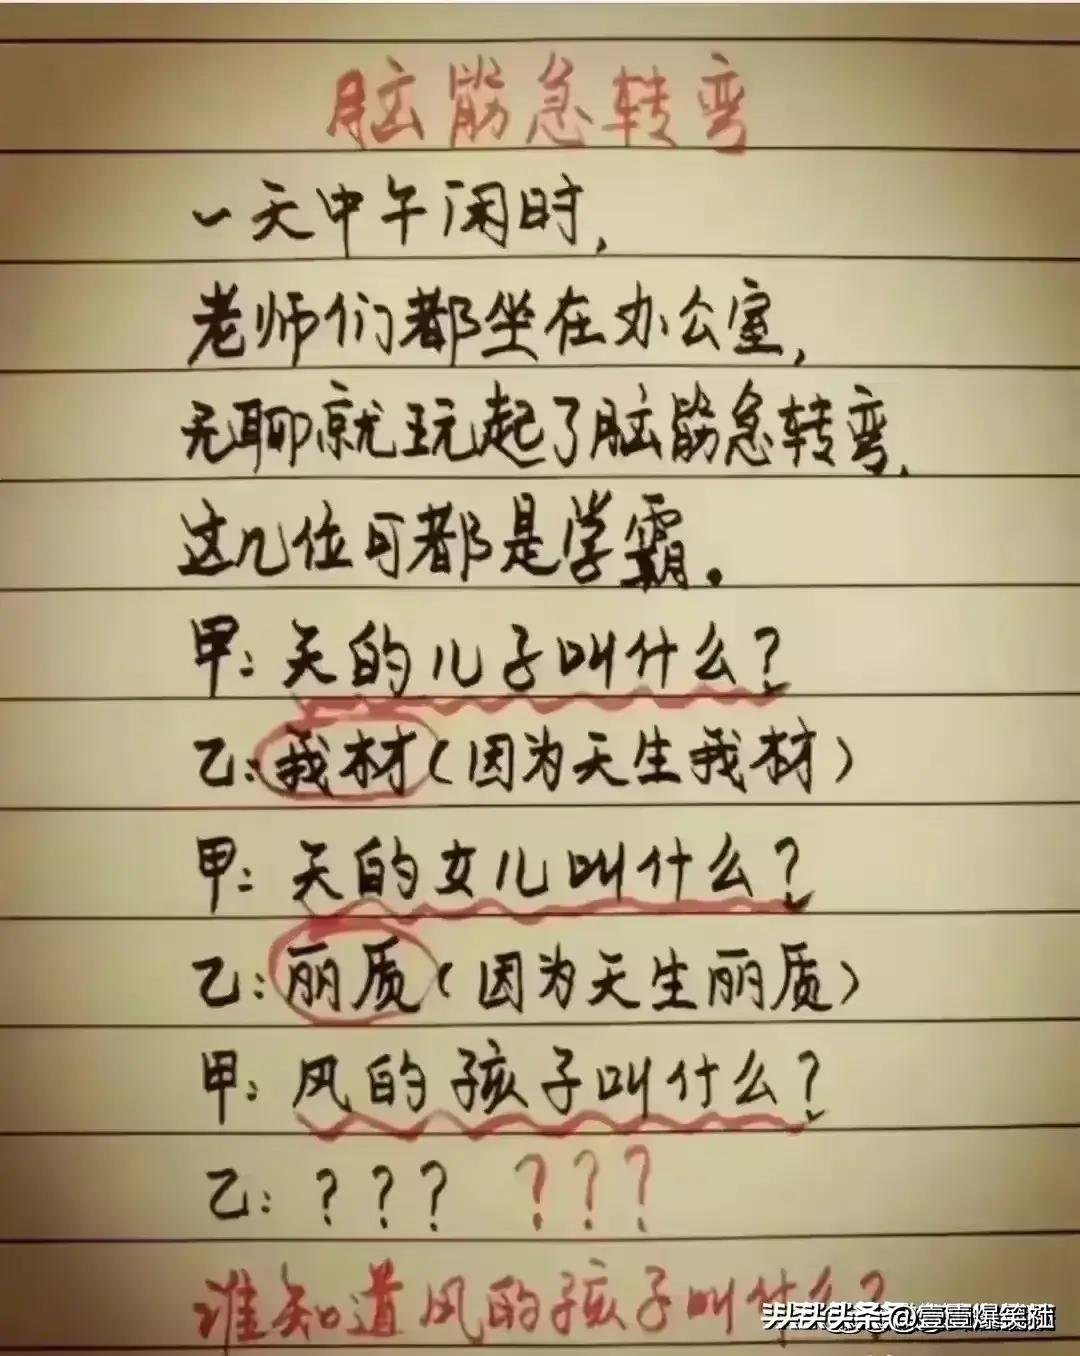 脑筋急转弯
一天中午闲时,
老师们都坐在办公室,
无聊就玩起了脑筋急转弯,
这几位可都是学霸。
甲:天的儿子叫什么?
乙:我材(因为天生我材)
甲:天的女儿叫什么?
乙:丽质(因为天生丽质)
甲:风的孩子叫什么?
乙:??? ???
谁知道风的孩子叫什么?
头条@壹壹爆笑社